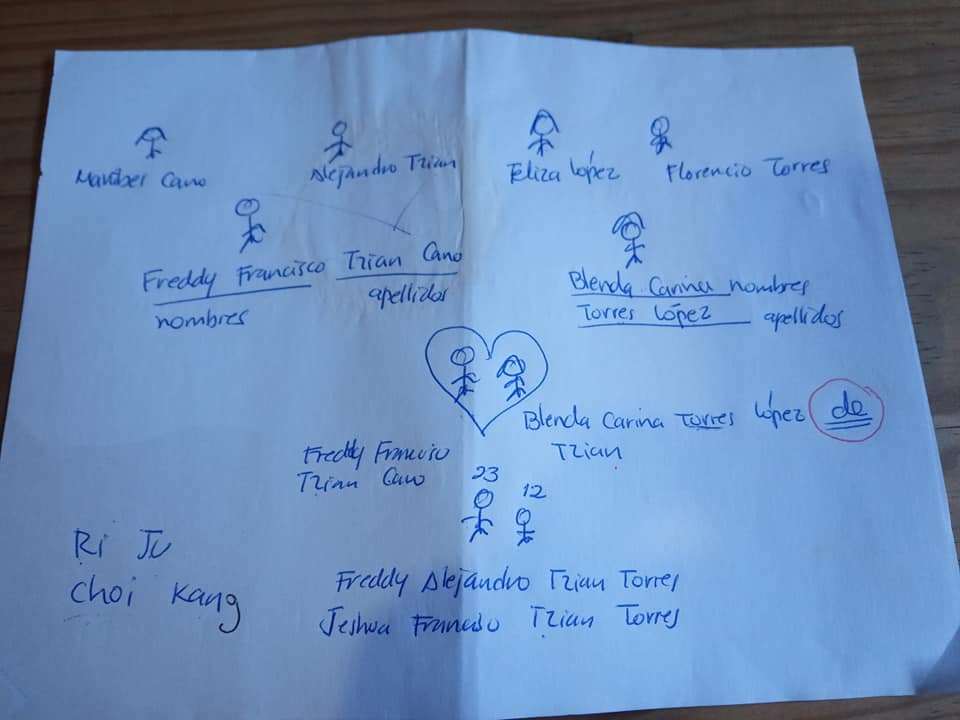 Mariber Cano
Alejandro Tzian
Feliza López
Florencio Torres
Freddy Francisco Tzian Cano
nombres
apellidos
Blenda Carina nombres
Torres López apellidos
Blenda Carina Torres López de
Tzian
Freddy Francisco
Tzian Cano
23
12
Ri Ju
Choi Kang
Freddy Alejandro Tzian Torres
Jeshua Francisco Tzian Torres